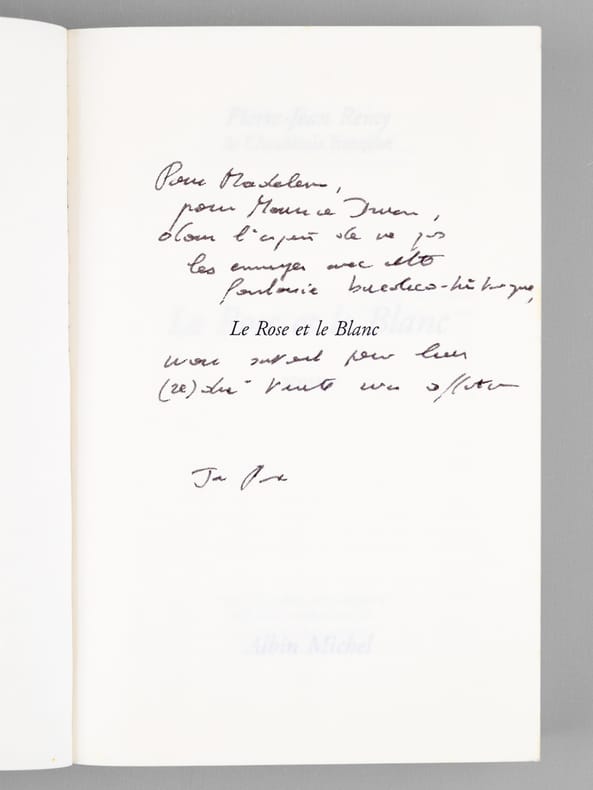 Pierre-Jean Remy
de l'Académie française
Pour Madeleine,
pour Maurice
dans l'espoir de ne pas
les ennuyer avec cette
fantaisie bucolico-historique,
La Rose et le Blanc
Le Rose et le Blanc
mais surtout pour leur
(re)dire toute mon affection
Albin Michel